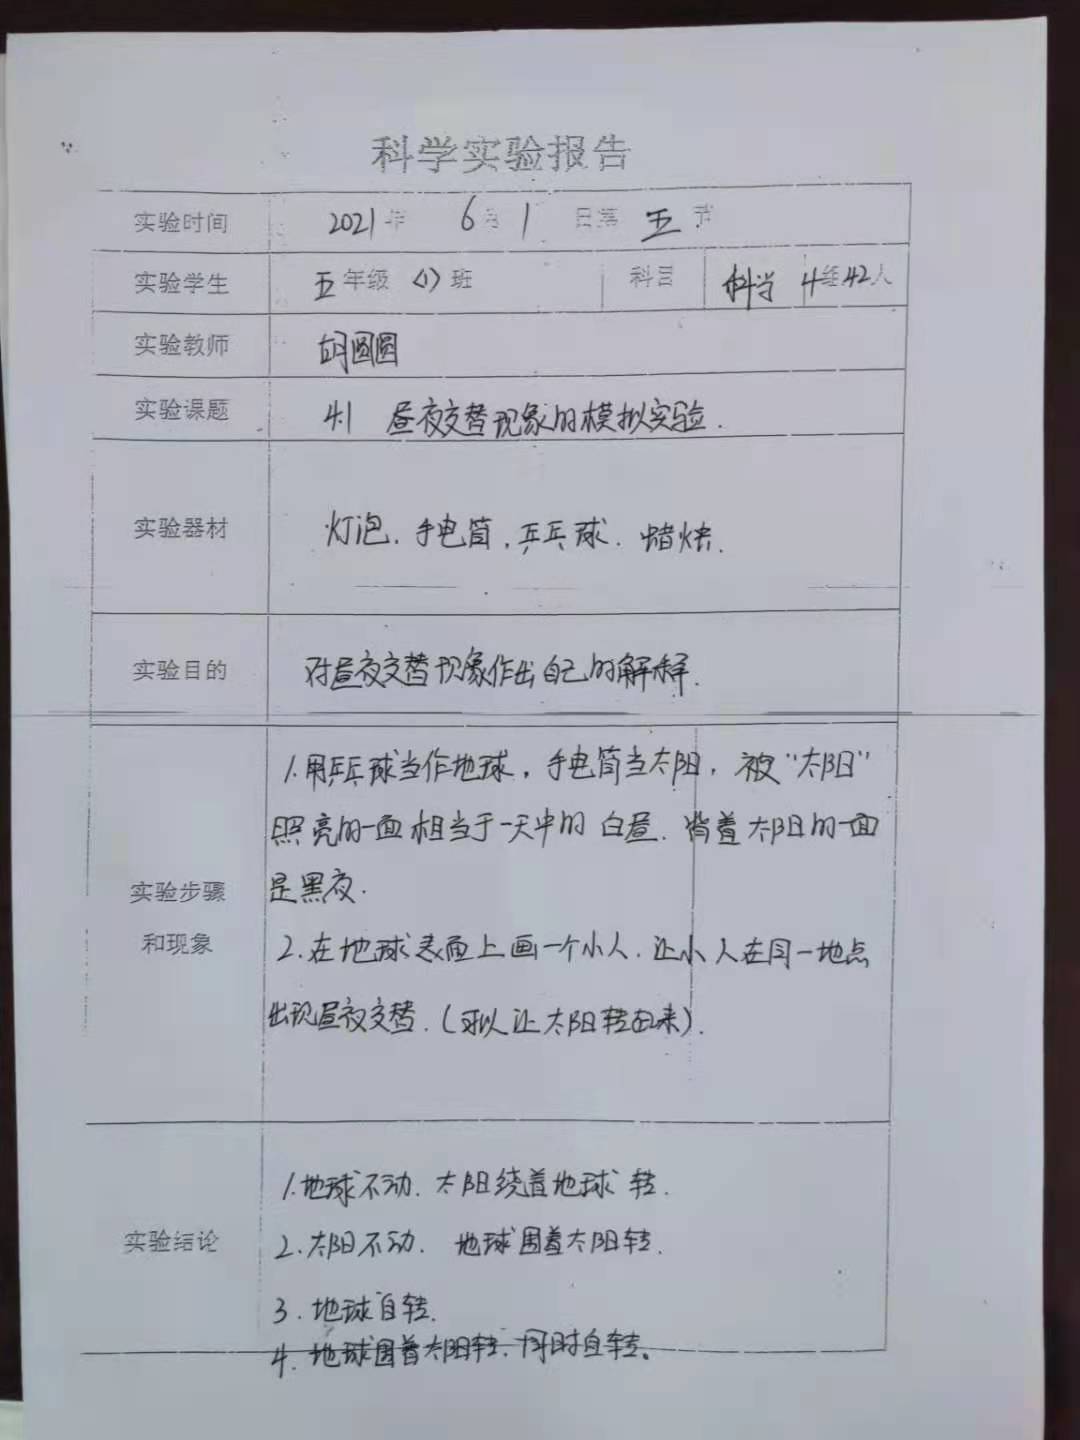 科学实验报告
实验时间 2021年 6月 1 日第 五 节
实验学生 五年级 (1)班 科目 科学 4组42人
实验教师 胡圆圆
实验课题 4.1 昼夜交替现象的模拟实验.
实验器材 灯泡.手电筒.乒乓球.蜡烛.
实验目的 对昼夜交替现象作出自己的解释.
实验步骤
和现象
1.用乒乓球当作地球,手电筒当太阳,被“太阳”
照亮的一面相当于一天中的白昼.背着太阳的一面
是黑夜.
2.在地球表面上画一个小人.让小人在同一地点
出现昼夜交替.(可以让太阳转起来).
实验结论
1.地球不动.太阳绕着地球转.
2.太阳不动.地球围着太阳转.
3.地球自转.
4.地球围着太阳转.同时自转。